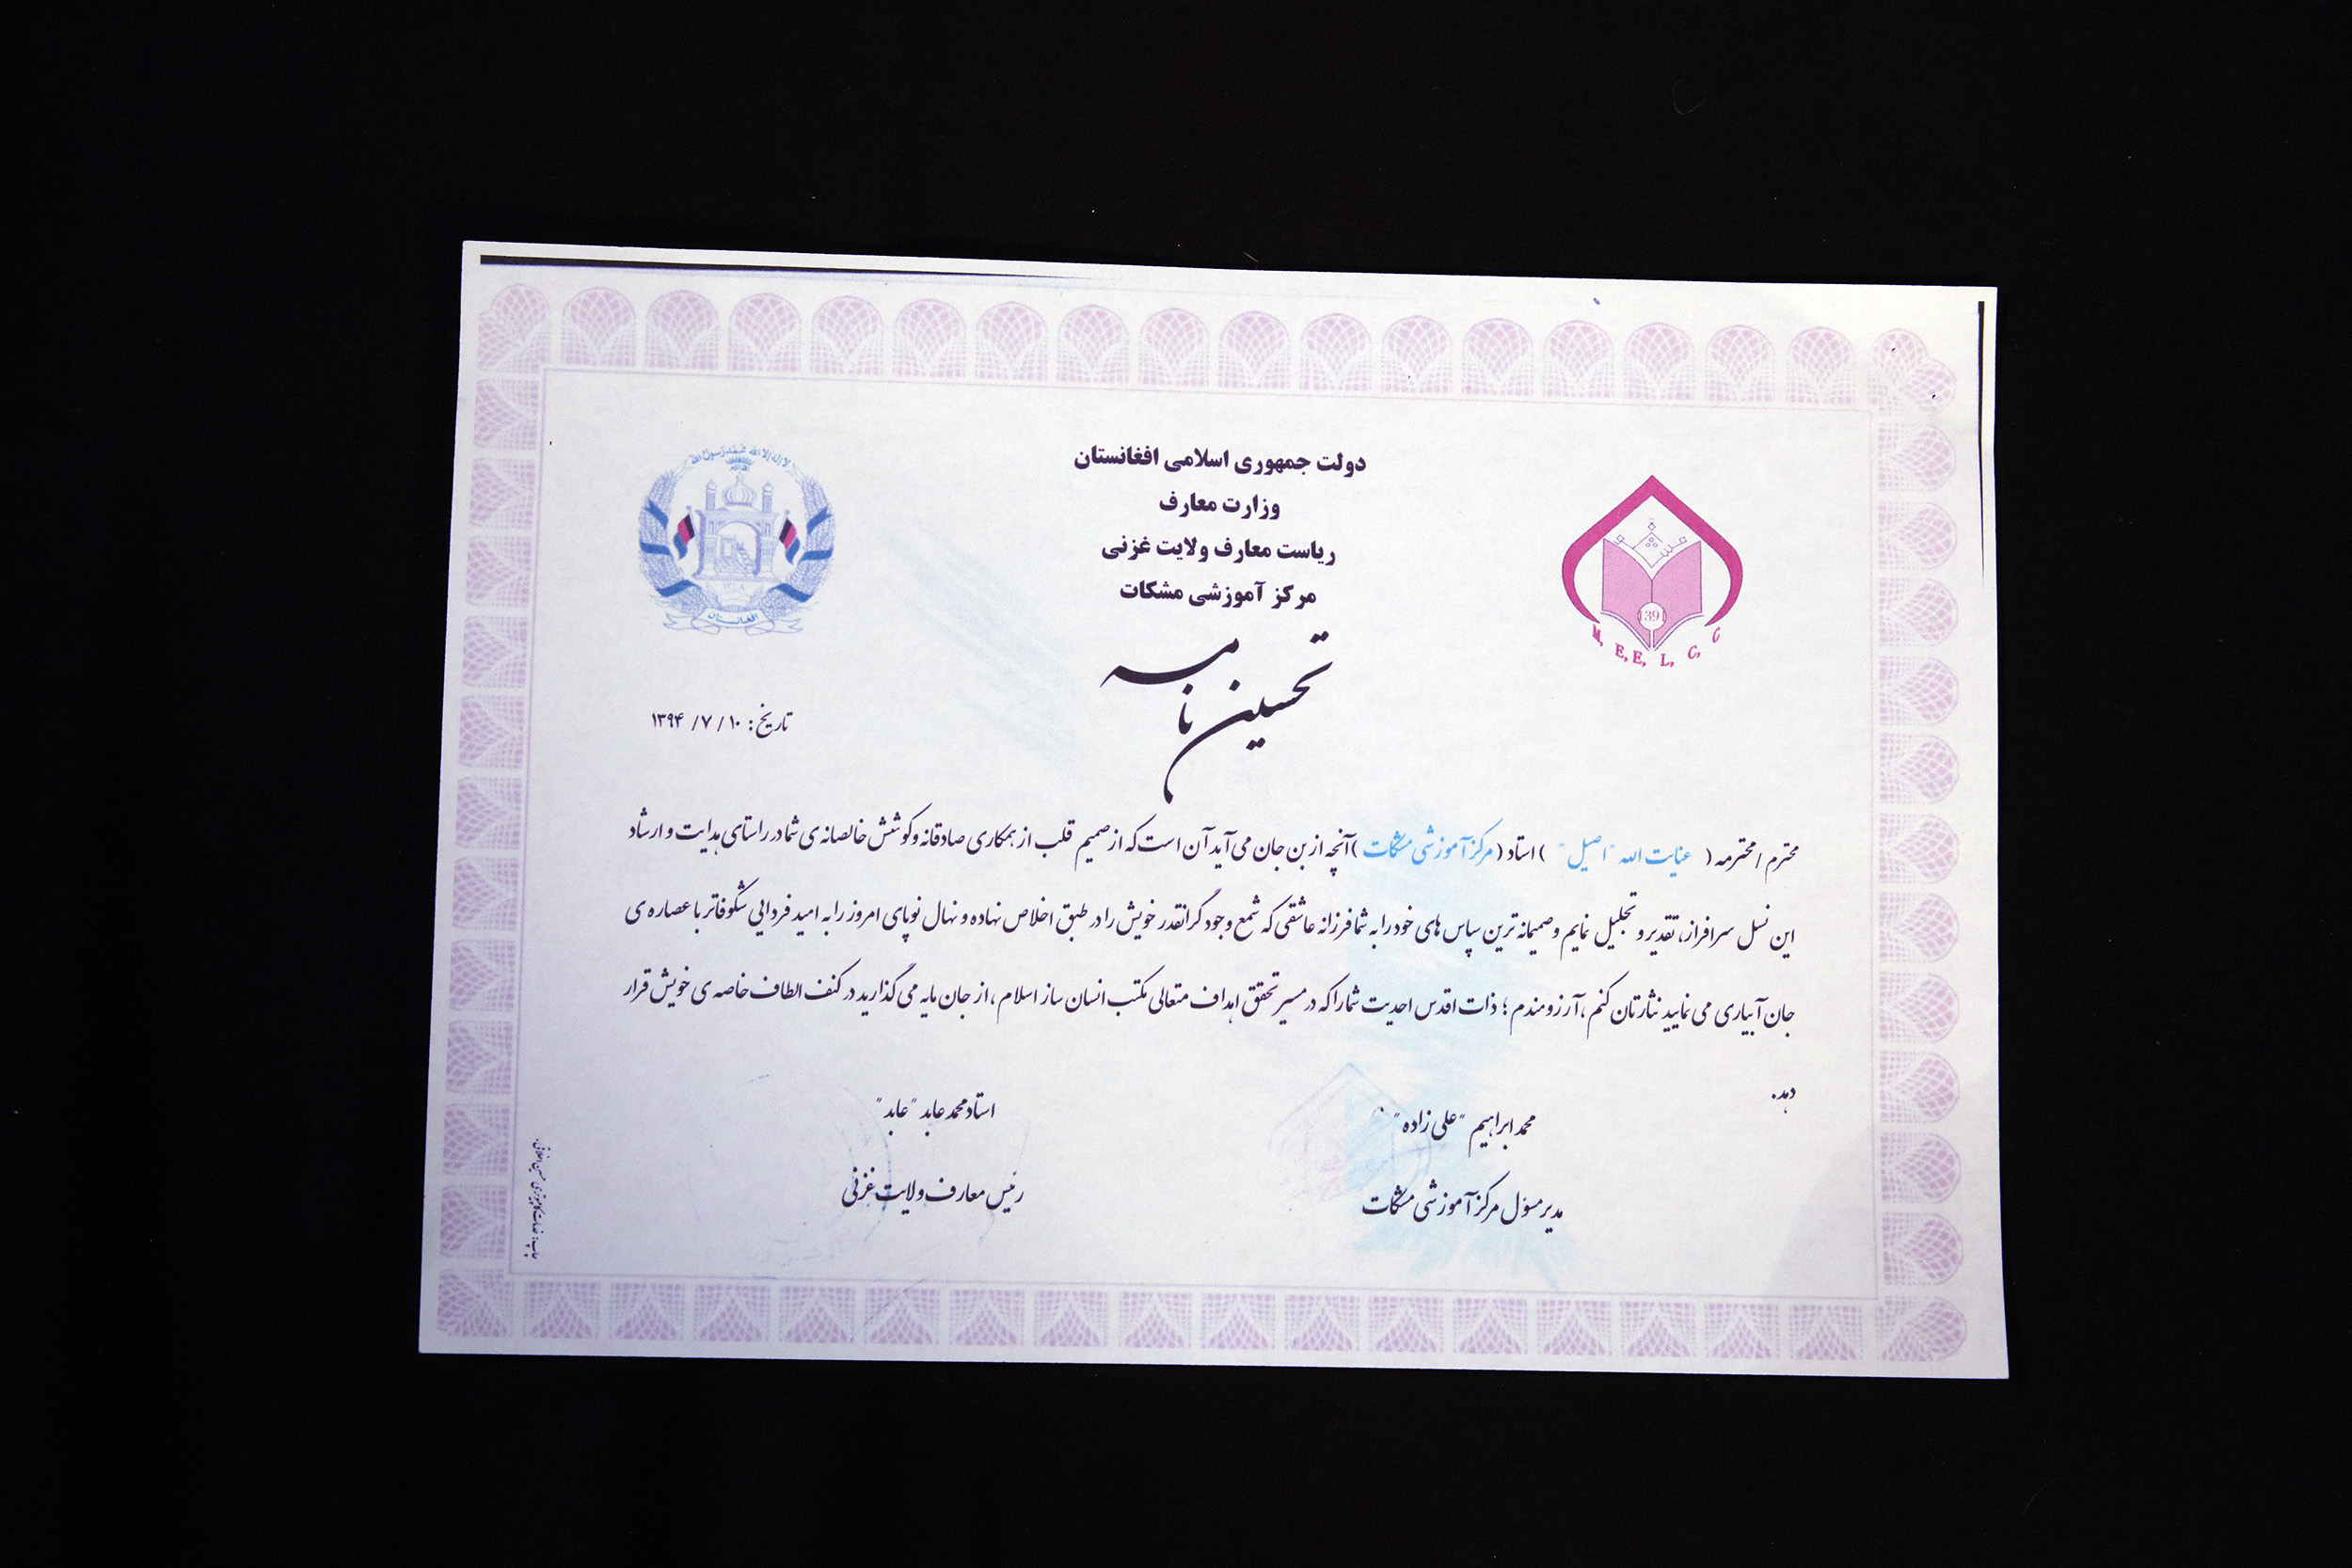 لا إله إلا الله محمد رسول الله
افغانستان
دولت جمهوری اسلامی افغانستان
وزارت معارف
ریاست معارف ولایت غزنی
مرکز آموزشی مشکات
مشکوة
1391
M. E.E. L. C. C
تحسین نامه
تاریخ: ۱۰ / ۷ / ۱۳۹۴
محترم / محترمه ( عنایت الله "اصیل" ) استاد (مرکز آموزشی مشکات) آنچه از بن جان می آید آن است که از صمیم قلب از همکاری صادقانه و کوشش خالصانه ی شما در راستای هدایت و ارشاد
این نسل سرافراز، تقدیر و تجلیل نمایم و صمیمانه ترین سپاس های خود را به شما فرزانه عاشقی که شمع وجود گرانقدر خویش را در طبق اخلاص نهاده و نهال نوپای امروز را به امید فردایی شکوفاتر با عصاره ی
جان آبیاری می نمایید نثارتان کنم، آرزومندم؛ ذات اقدس احدیت شما را که در مسیر تحقق اهداف متعالی مکتب انسان ساز اسلام، از جان مایه می گذارید در کنف الطاف خاصه ی خویش قرار
دهد.
محمد ابراهیم "علی زاده"
مدیر مسؤل مرکز آموزشی مشکات
استاد محمد عابد "عابد"
رئیس معارف ولایت غزنی
چاپ: خدمات کامپیوتری حسین اخلاقی.